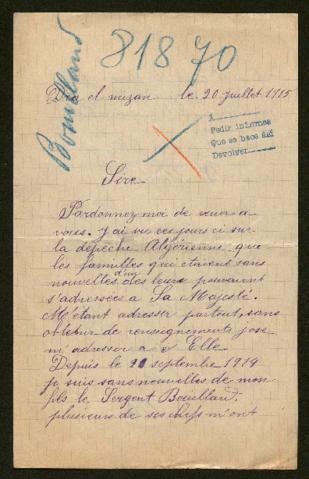 Bouilland
81870
Dra el mizan le 20 juillet 1915
A
Pedir informes
Que se hace así
Devolver
Sire
Pardonnez moi de venir a
vous. j'ai vu ces jours ci sur
la dépêche Algérienne que
les familles qui étaient sans
nouvelles d'un des leurs pouvaient
s'adressées a Sa Majesté.
M'étant adresser partout, sans
obtenir de renseignements j'ose
m'adresser a Elle
Depuis le 20 septembre 1914
je suis sans nouvelles de mon
fils le Sergent Bouilland.
plusieurs de ses chefs m'ont